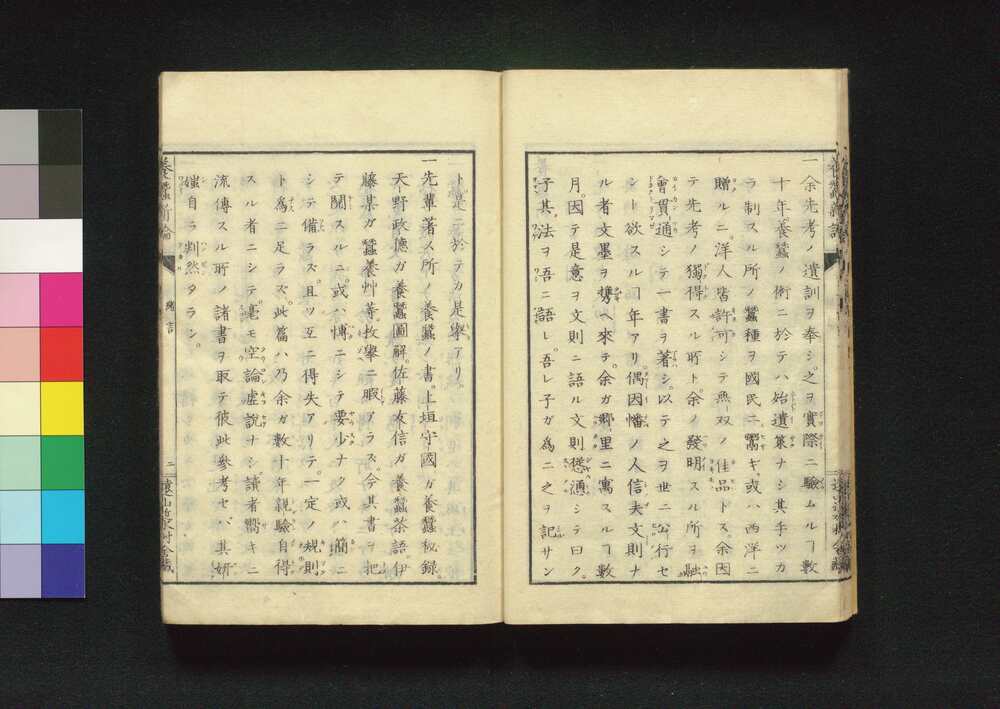 一余先考ノ遺訓ヲ奉シ之ヲ實際ニ驗ムルヿ數
十年養蠶ノ術ニ於テハ始遺策ナシ其手ツカ
ラ制スル所ノ蠶種ヲ國民ニ鬻ギ或ハ西洋ニ
贈ルニ洋人皆許可シテ無双ノ佳品トス余因
テ先考ノ獨得スル所ト余ノ發明スル所ヲ融
會貫通シテ一書ヲ著シ以テ之ヲ世ニ公行セ
シト欲スルヿ年アリ偶因幡ノ人信夫文則ナ
ル者文墨ヲ携ヘ來テ余ガ郷里ニ寓スルヿ數
月因テ是意ヲ文則ニ語ル文則慫慂シテ曰ク
子其法ヲ吾ニ語レ吾レ子ガ爲ニ之ヲ記サン
ト是ニ於テカ是擧アリ
一先輩著ス所ノ養蠶ノ書上垣守國ガ養蠶秘録
天野政德ガ養蠶圖解佐藤友信ガ養蠶茶話伊
藤某ガ蠶養艸等枚擧ニ暇アラス今其書ヲ把
テ閲スルニ或ハ博ニシテ要少ナク或ハ簡ニ
シテ備ラス且ツ互ニ得失アリテ一定ノ規則
ト爲ニ足ラス此篇ハ乃余ガ數十年親驗自得
スル者ニシテ毫モ空論虚說ナシ讀者嚮キニ
流傳スル所ノ諸書ヲ取テ彼此參考セバ其妍
媸自ラ判然タラン
養蠶新論
緒言
二